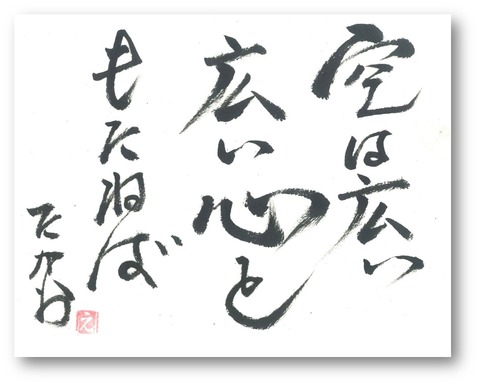 空は広い
広い心を
もたねば
たかお